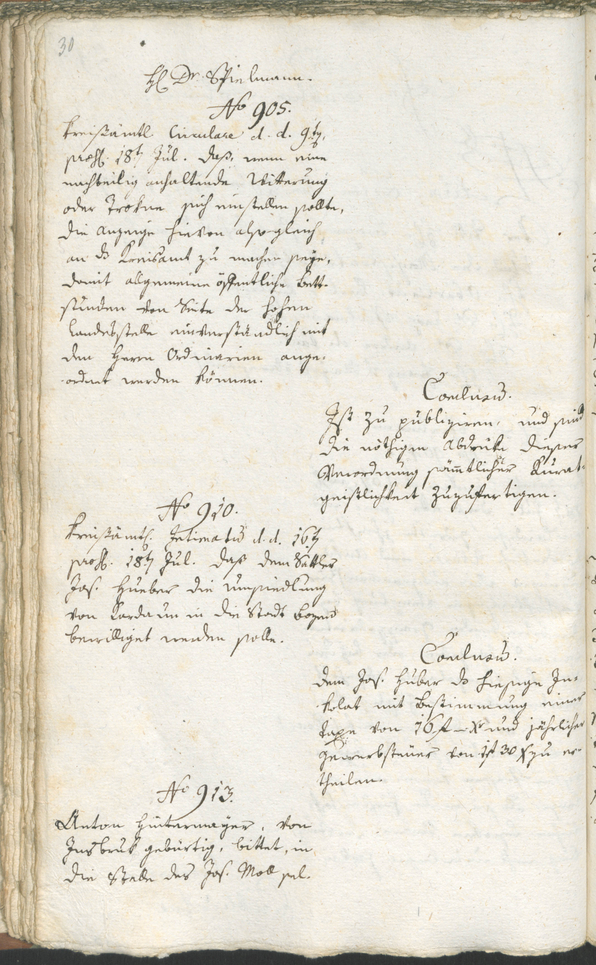 30
H. Dr. Spielmann.
No 905.
Kreisämtl Circulare d. d. 9ty,
praes. 18t Jul. daß, wenn eine
nachteilig anhaltende Witterung
oder Trökne sich einstellen sollte,
die Anzeige hievon alsogleich
an ds Kreisamt zu machen seye,
damit allgemeine öffentliche Bett-
stunden von Seite der hohen
Landesstelle einverständlich mit
den Herrn Ordinarien ange-
ordnet werden können.
Conclusum.
Ist zu publiziren, und sind
die nöthigen Abdrüke dieser
Verordnung sämtlicher Kurat-
geistlichkeit zuzufertigen.
No 910.
Kreisämtl. Intimatum d. d. 16ty
praes. 18ty Jul. daß dem Sattler
Jos. Hueber die Umsiedlung
von Kardaun in die Stadt Bozen
bewilliget werden solle.
Conclusum.
dem Jos. Huber ds hiesige In-
kolat mit Bestimmung einer
Taxe von 16 f – x und jährlicher
Gewerbsteuer von 1 f 30 x zu er-
theilen.
No 913.
Anton Hintermayer, von
Insbruk gebürtig, bittet, in
die Stelle des Jos. Moll sel.